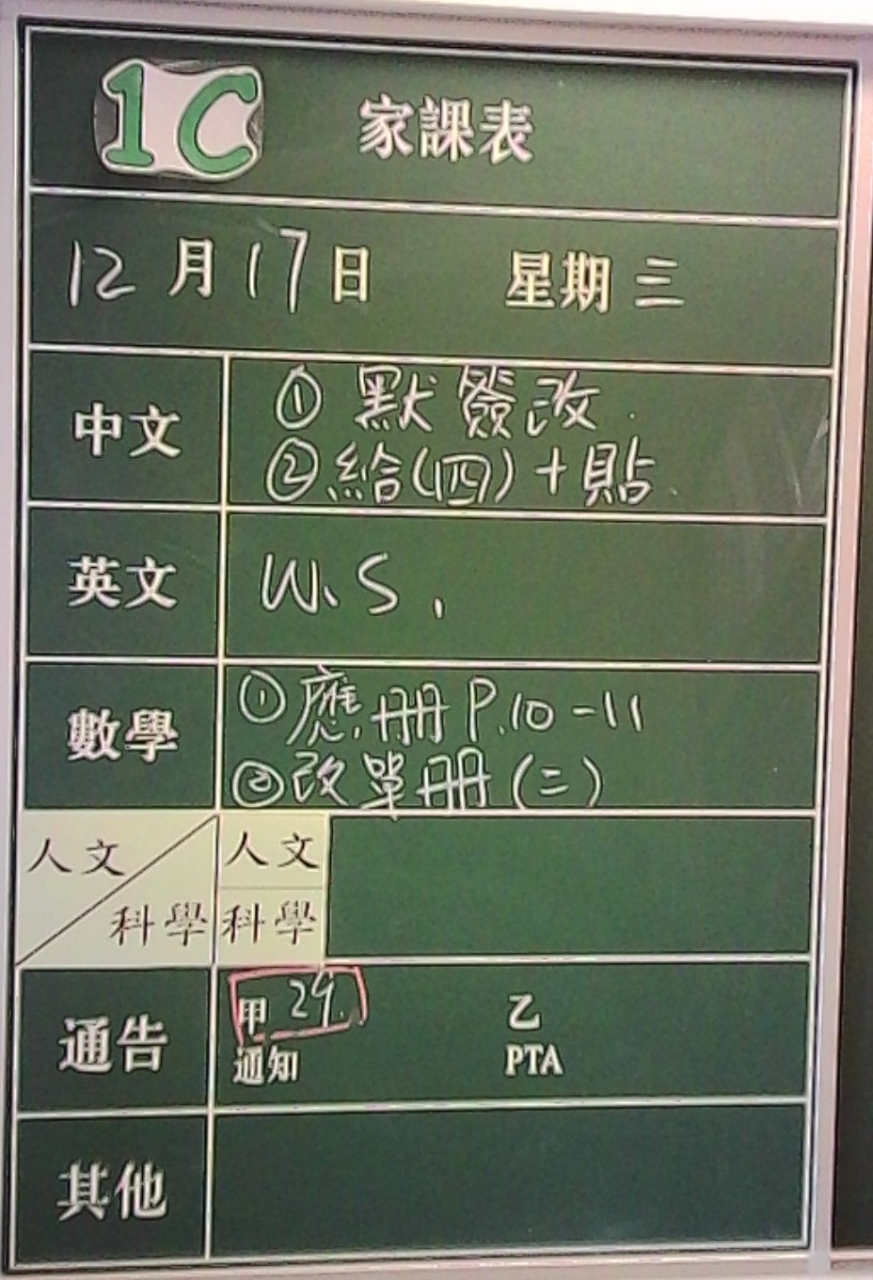 1C 家課表
12月17日 星期三
中文
① 默簽改
② 給(四)+貼
英文
W.S.
數學
① 應.冊 P.10-11
② 改單冊(二)
人文
科學
人文
科學
通告
甲 29. 乙
通知 PTA
其他